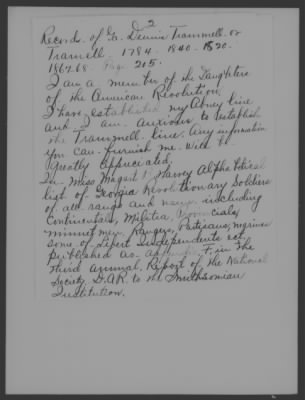 2
Records. of Ga. Dennis Trammell. or
Tramell. 1784. 1840. 1820.
1867-68. Page 215.
I am a member of the Daughters
of the American Revolution.
I have established my Abney line
and I am. anxious to establish
the Trammell. line. Any information
you can. furnish me. Will be
Greatly appreciated.
In Miss Harvey Alphabetical
list of Georgia Revolutionary Soldiers
of all range and including
Continentals, Militia, Provincials,
minnet men, Rangers, Partisans,
some of Independents ect,
published as. Appendix F. in The
Third annual, Report of the National
Society D.A.R. to the Smithsonian
Institution.